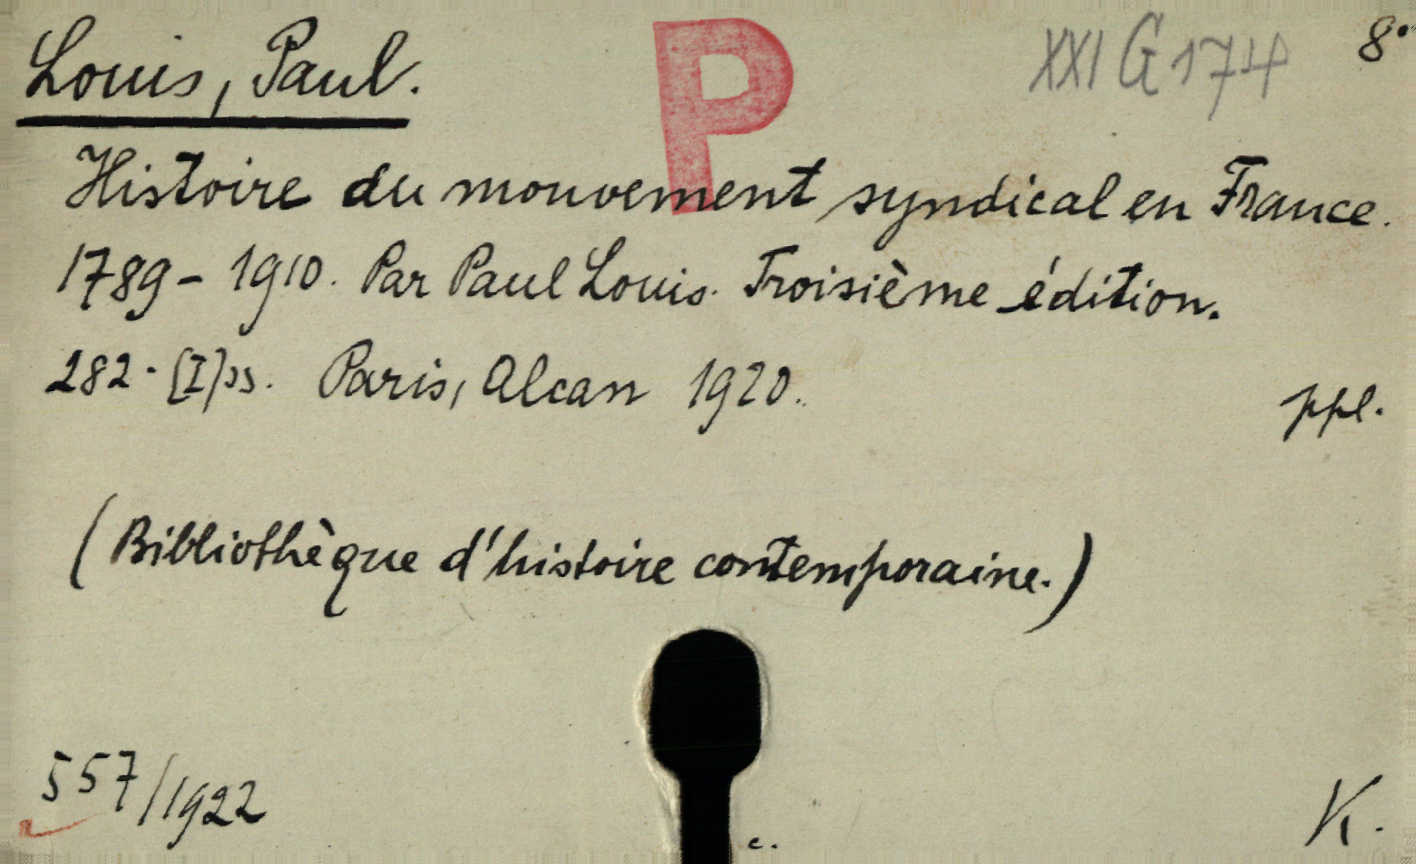 Louis, Paul.
P
XXI G 174
8°
Histoire du mouvement syndical en France.
1789 - 1910. Par Paul Louis. Troisième édition.
282 · [I] ss. Paris, Alcan 1920.
ppl.
(Bibliothèque d'histoire contemporaine.)
557/1922
K.
c.